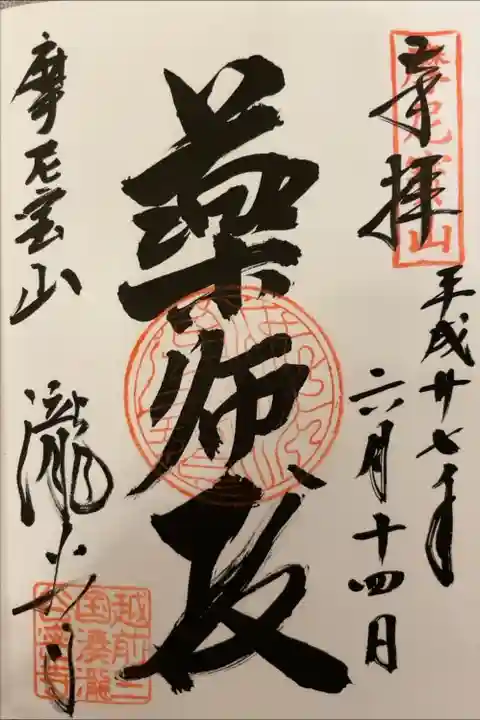 摩尼宝山
奉拝
平成廿七年
六月十四日
薬師
摩尼宝山
瀧谷寺
越前三
国湊瀧
谷寺